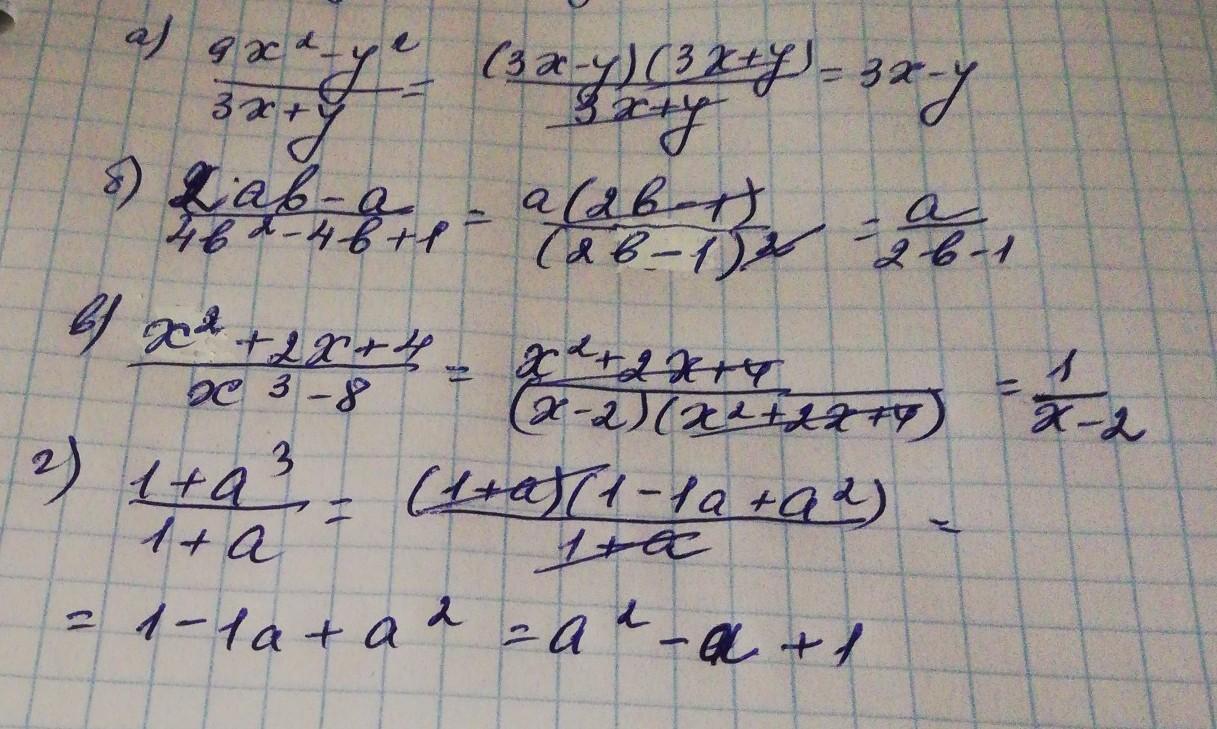 а) (9x² - y²)/(3x + y) = ((3x - y)(3x + y))/(3x + y) = 3x - y
б) (2ab - a)/(4b² - 4b + 1) = (a(2b - 1))/((2b - 1)²) = a/(2b - 1)
в) (x² + 2x + 4)/(x³ - 8) = (x² + 2x + 4)/((x - 2)(x² + 2x + 4)) = 1/(x - 2)
г) (1 + a³)/(1 + a) = ((1 + a)(1 - 1a + a²))/(1 + a) =
= 1 - 1a + a² = a² - a + 1